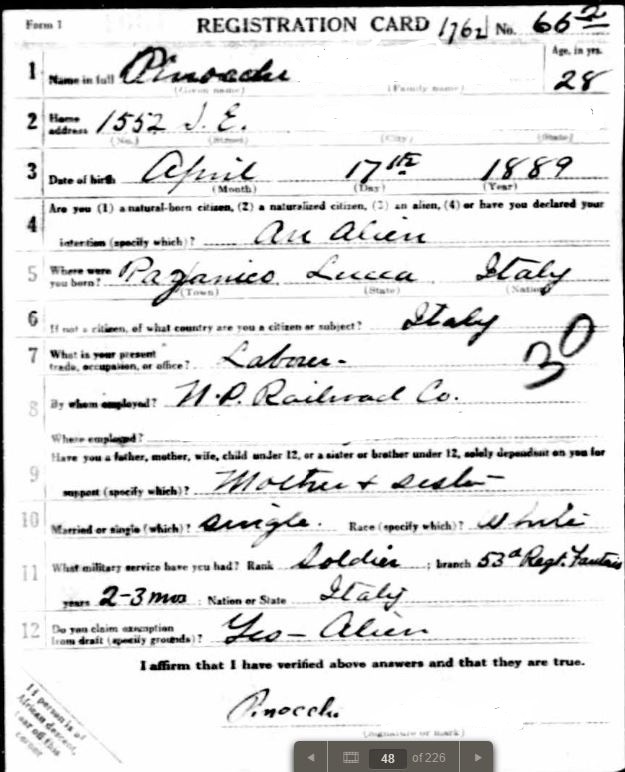 Form 1 REGISTRATION CARD 1762 No. 66
Age, in yrs.
1 Name in full Pinocchi 28
(Given name) (Family name)
2 Home address 1552 J. E.
(No.) (Street) (City) (State)
3 Date of birth April 17th 1889
(Month) (Day) (Year)
4 Are you (1) a natural-born citizen, (2) a naturalized citizen, (3) an alien, (4) or have you declared your
intention (specify which)? An Alien
5 Where were you born? Paganico Lucca Italy
(Town) (State) (Nation)
6 If not a citizen, of what country are you a citizen or subject? Italy
30
7 What is your present trade, occupation, or office? Laborer-
8 By whom employed? N.P. Railroad Co.
Where employed?
9 Have you a father, mother, wife, child under 12, or a sister or brother under 12, solely dependent on you for
support (specify which)? Mother + sister
10 Married or single (which)? Single. Race (specify which)? White
11 What military service have you had? Rank Soldier ; branch 53d Regt.
years 2-3 mos ; Nation or State Italy
12 Do you claim exemption from draft (specify grounds)? Yes - Alien
I affirm that I have verified above answers and that they are true.
Pinocchi
(Signature or mark)
If person is of
African descent,
tear off this
corner
48 of 226